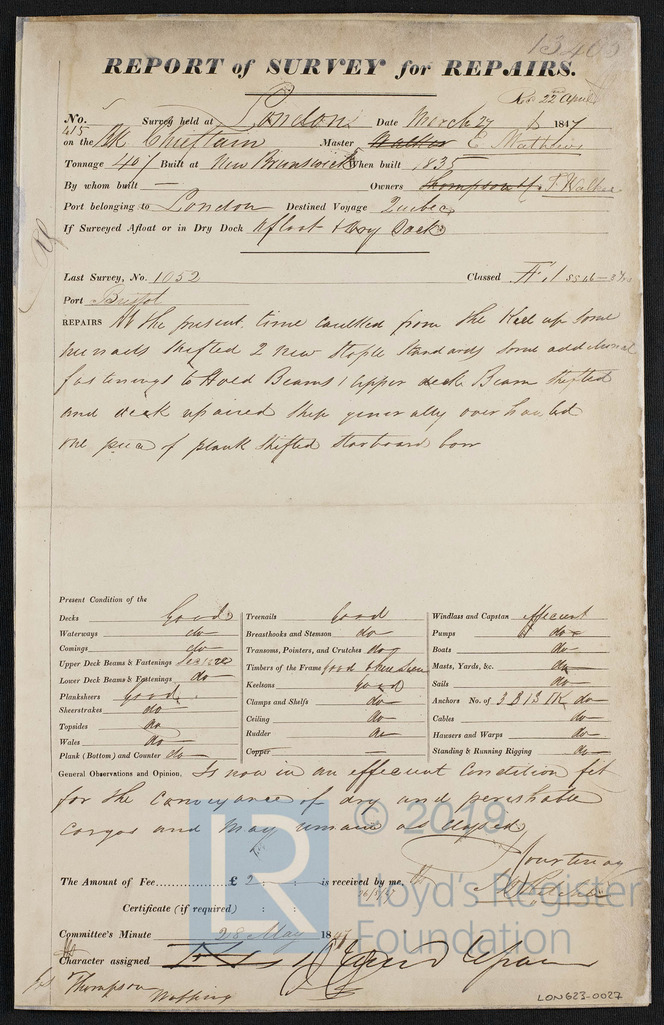 13403
REPORT of SURVEY for REPAIRS.
22nd April
No. 415 Survey held at London Date March 27 1847
on the Bk Chieftain Master Walker C Mathews
Tonnage 407 Built at New Brunswick When built 1835
By whom built — Owners Thompson & Co T Walker
Port belonging to London Destined Voyage Quebec
If Surveyed Afloat or in Dry Dock Afloat & Dry Dock
Last Survey, No. 1052 Classed Æ 1
Port Bristol
REPAIRS At the present time caulked from the Keel up some
shifted 2 new Staple Standards some additional
fastenings to Hold Beams 1 upper deck Beam shifted
and deck repaired Ship generally overhauled
one piece of plank shifted starboard bow
Present Condition of the
Decks Good
Waterways do
Comings do
Upper Deck Beams & Fastenings
Lower Deck Beams & Fastenings do
Planksheers Good
Sheerstrakes do
Topsides do
Wales do
Plank (Bottom) and Counter do
Treenails Good
Breasthooks and Stemson do
Transoms, Pointers, and Crutches do
Timbers of the Frame Good where seen
Keelsons Good
Clamps and Shelfs do
Ceiling do
Rudder do
Copper —
Windlass and Capstan efficient
Pumps do
Boats do
Masts, Yards, &c. do
Sails do
Anchors No. of 3 B 1 S 1 K do
Cables do
Hawsers and Warps do
Standing & Running Rigging do
General Observations and Opinion, Is now in an efficient condition fit
for the conveyance of dry and perishable
cargos and may remain as classed
© 2019
LR
Lloyd's Register
Foundation
The Amount of Fee............£ 2 : : is received by me,
Certificate (if required) : :
Committee's Minute 28 May 1847
Character assigned
Thompson
Wapping
LON623-0027